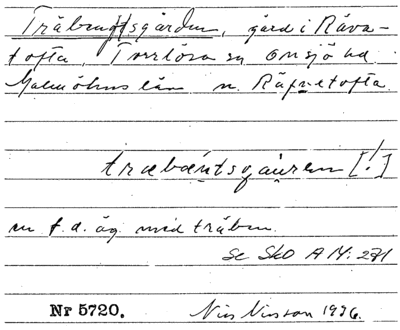 Träbengtsgården, gård i Räva-
tofta, Torrlösa sn Onsjö hd
Malmöhus län n. Räfvetofta.
träbæntsgåuren [!]
en f.d. äg. med träben.
se SkO AM: 271
Nr 5720. Nils Nilsson 1936.